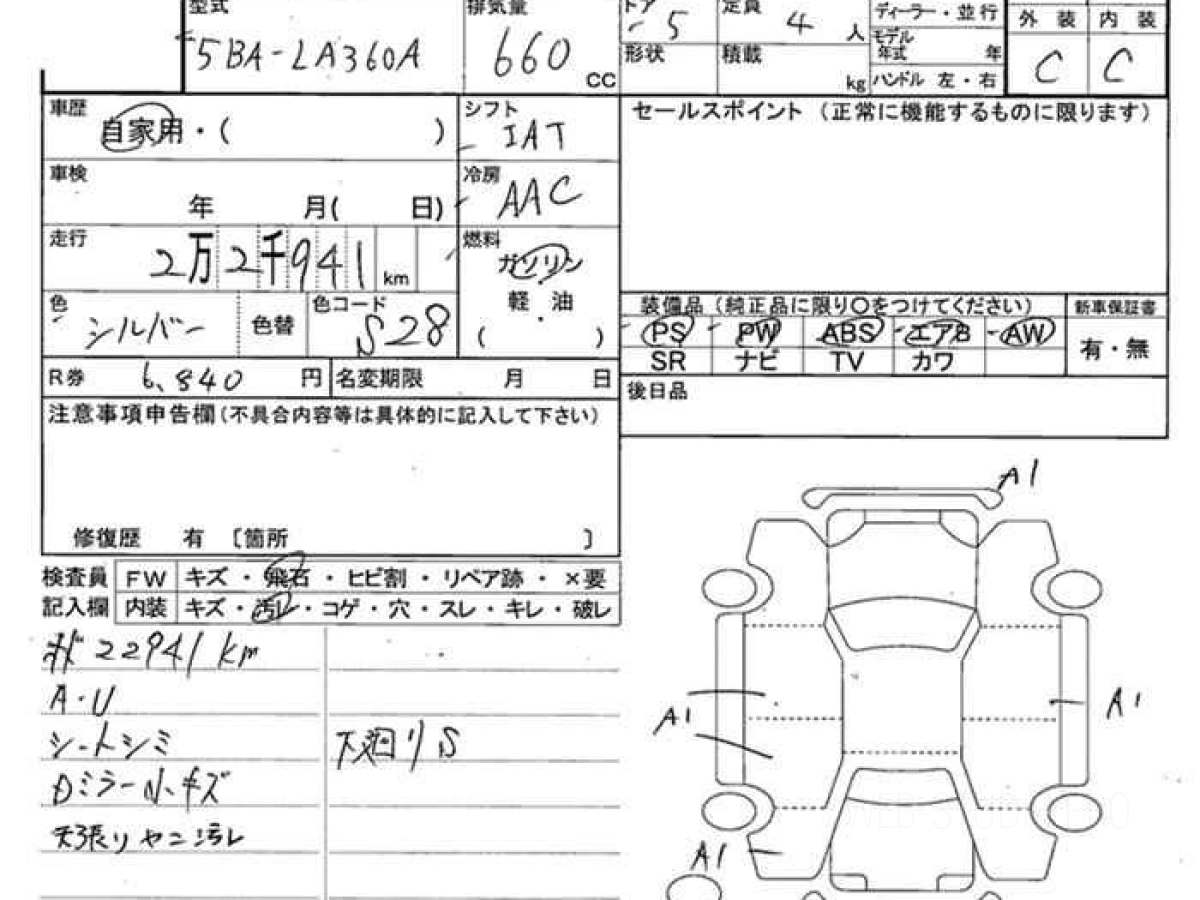 型式 排気量 ドア 5 定員 4 人 ディーラー・並行 外装 内装
5BA-LA360A 660 CC 形状 積載 kg モデル年式 年 C C
ハンドル 左・右
車歴 自家用・( ) シフト IAT セールスポイント (正常に機能するものに限ります)
車検 年 月( 日) 冷房 AAC
走行 2万2千941 km 燃料 ガソリン
軽・油
( )
色 シルバー 色替 色コード S28
装備品 (純正品に限り○をつけてください) 新車保証書
PS PW ABS エアB AW 有・無
SR ナビ TV カワ
R券 6,840 円 名変期限 月 日
後日品
注意事項申告欄(不具合内容等は具体的に記入して下さい)
修復歴 有 〔箇所 〕
検査員 FW キズ・飛石・ヒビ割・リペア跡・×要
記入欄 内装 キズ・汚レ・コゲ・穴・スレ・キレ・破レ
22941km
A・U
シートシミ 下廻りS
Dミラー小キズ
天張りヤニ汚レ
A1
A1
A1
A1